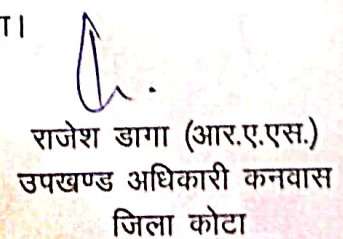 ता।
राजेश डागा (आर.ए.एस.)
उपखण्ड अधिकारी कनवास
जिला कोटा